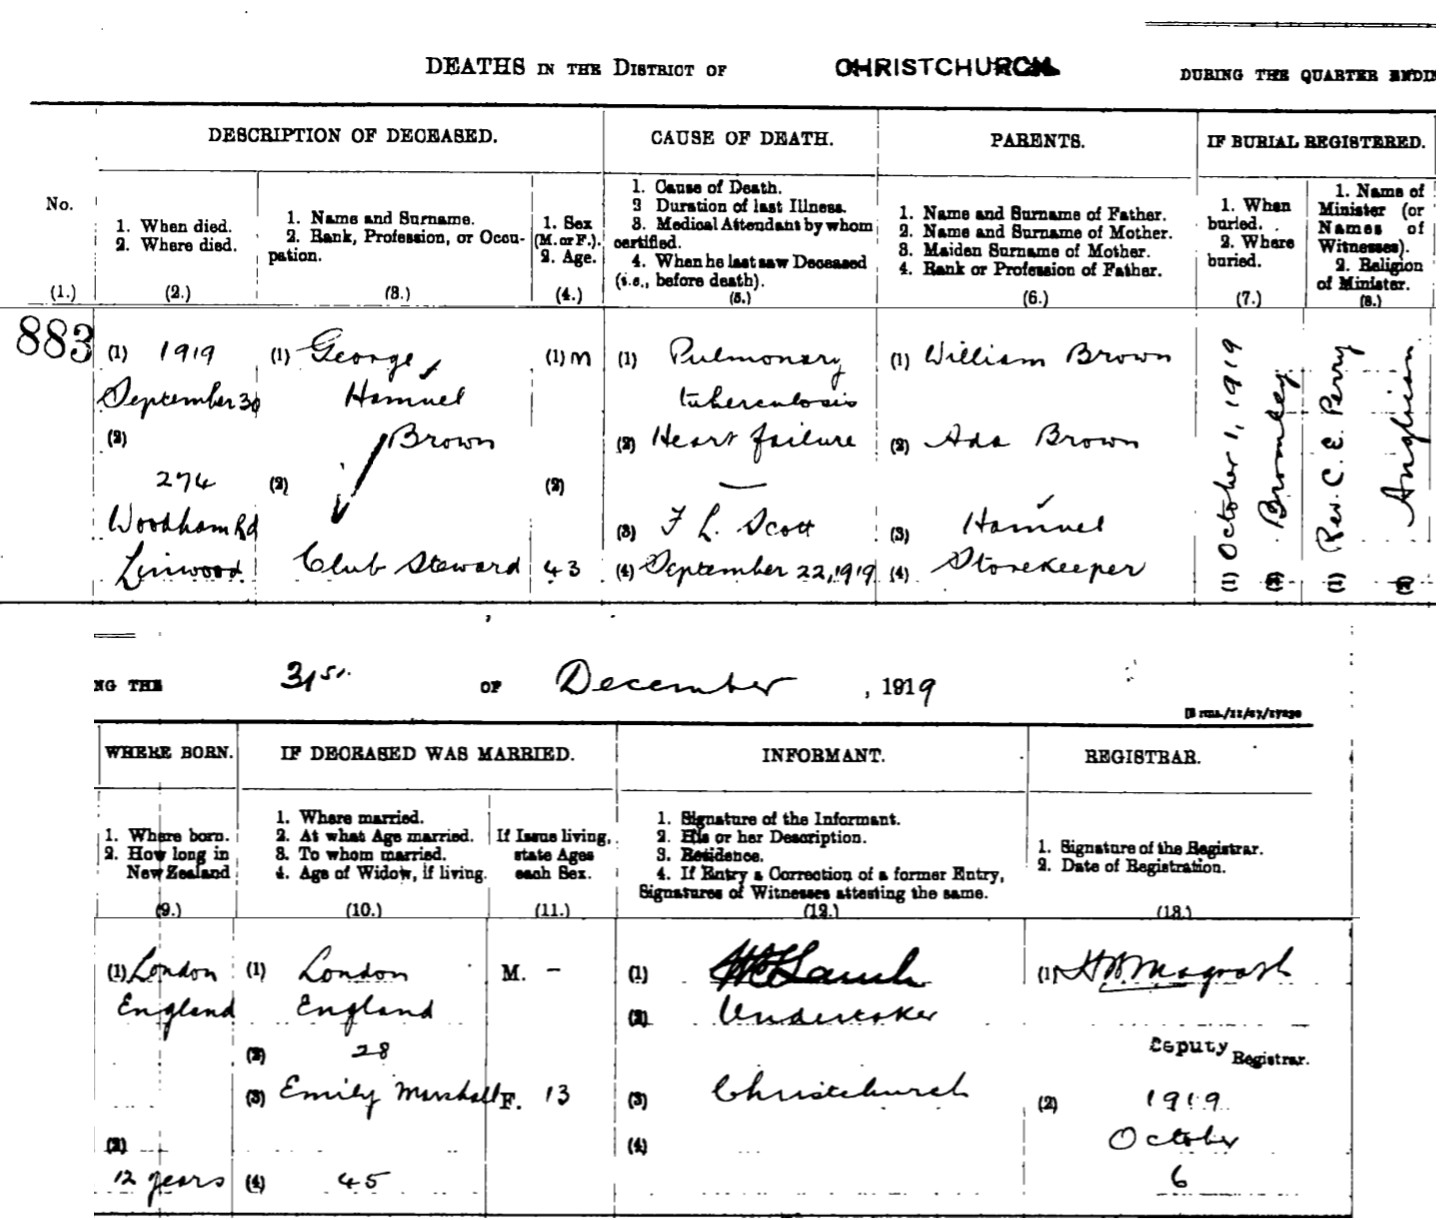 DEATHS IN THE DISTRICT OF CHRISTCHURCH DURING THE QUARTER ENDI
DESCRIPTION OF DECEASED. CAUSE OF DEATH. PARENTS. IF BURIAL REGISTERED.
No.
(1.)
1. When died.
2. Where died.
(2.)
1. Name and Surname.
2. Rank, Profession, or Occu-
pation.
(3.)
1. Sex
(M. or F.).
2. Age.
(4.)
1. Cause of Death.
2 Duration of last Illness.
3. Medical Attendant by whom
certified.
4. When he last saw Deceased
(i.e., before death).
(5.)
1. Name and Surname of Father.
2. Name and Surname of Mother.
3. Maiden Surname of Mother.
4. Rank or Profession of Father.
(6.)
1. When
buried.
2. Where
buried.
(7.)
1. Name of
Minister (or
Names of
Witnesses).
2. Religion
of Minister.
(8.)
883
(1) 1919
September 30
(2)
274
Woodham Rd
Linwood
(1) George
Hamuel
Brown
(2)
Club Steward
(1) M
(2)
43
(1) Pulmonary
tuberculosis
(2) Heart failure
—
(3) F L. Scott
(4) September 22, 1919
(1) William Brown
(2) Ada Brown
(3) Hamuel
(4) Storekeeper
(1) October 1, 1919
(2) Bromley
(1) Rev. C. E. Perry
(2) Anglican
NG THE 31st OF December, 1919
WHERE BORN. IF DECEASED WAS MARRIED. INFORMANT. REGISTRAR.
1. Where born.
2. How long in
New Zealand
(9.)
1. Where married.
2. At what Age married.
3. To whom married.
4. Age of Widow, if living.
(10.)
If Issue living,
state Ages
each Sex.
(11.)
1. Signature of the Informant.
2. His or her Description.
3. Residence.
4. If Entry a Correction of a former Entry,
Signatures of Witnesses attesting the same.
(12.)
1. Signature of the Registrar.
2. Date of Registration.
(13.)
(1) London
England
(2)
12 years
(1) London
England
(2) 28
(3) Emily Marshall
(4) 45
M. –
F. 13
(1) Lamb
(2) Undertaker
(3) Christchurch
(4)
(1)
Deputy Registrar.
(2) 1919
October
6